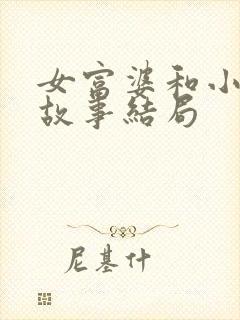 女富婆和小
故事结局
尼基什